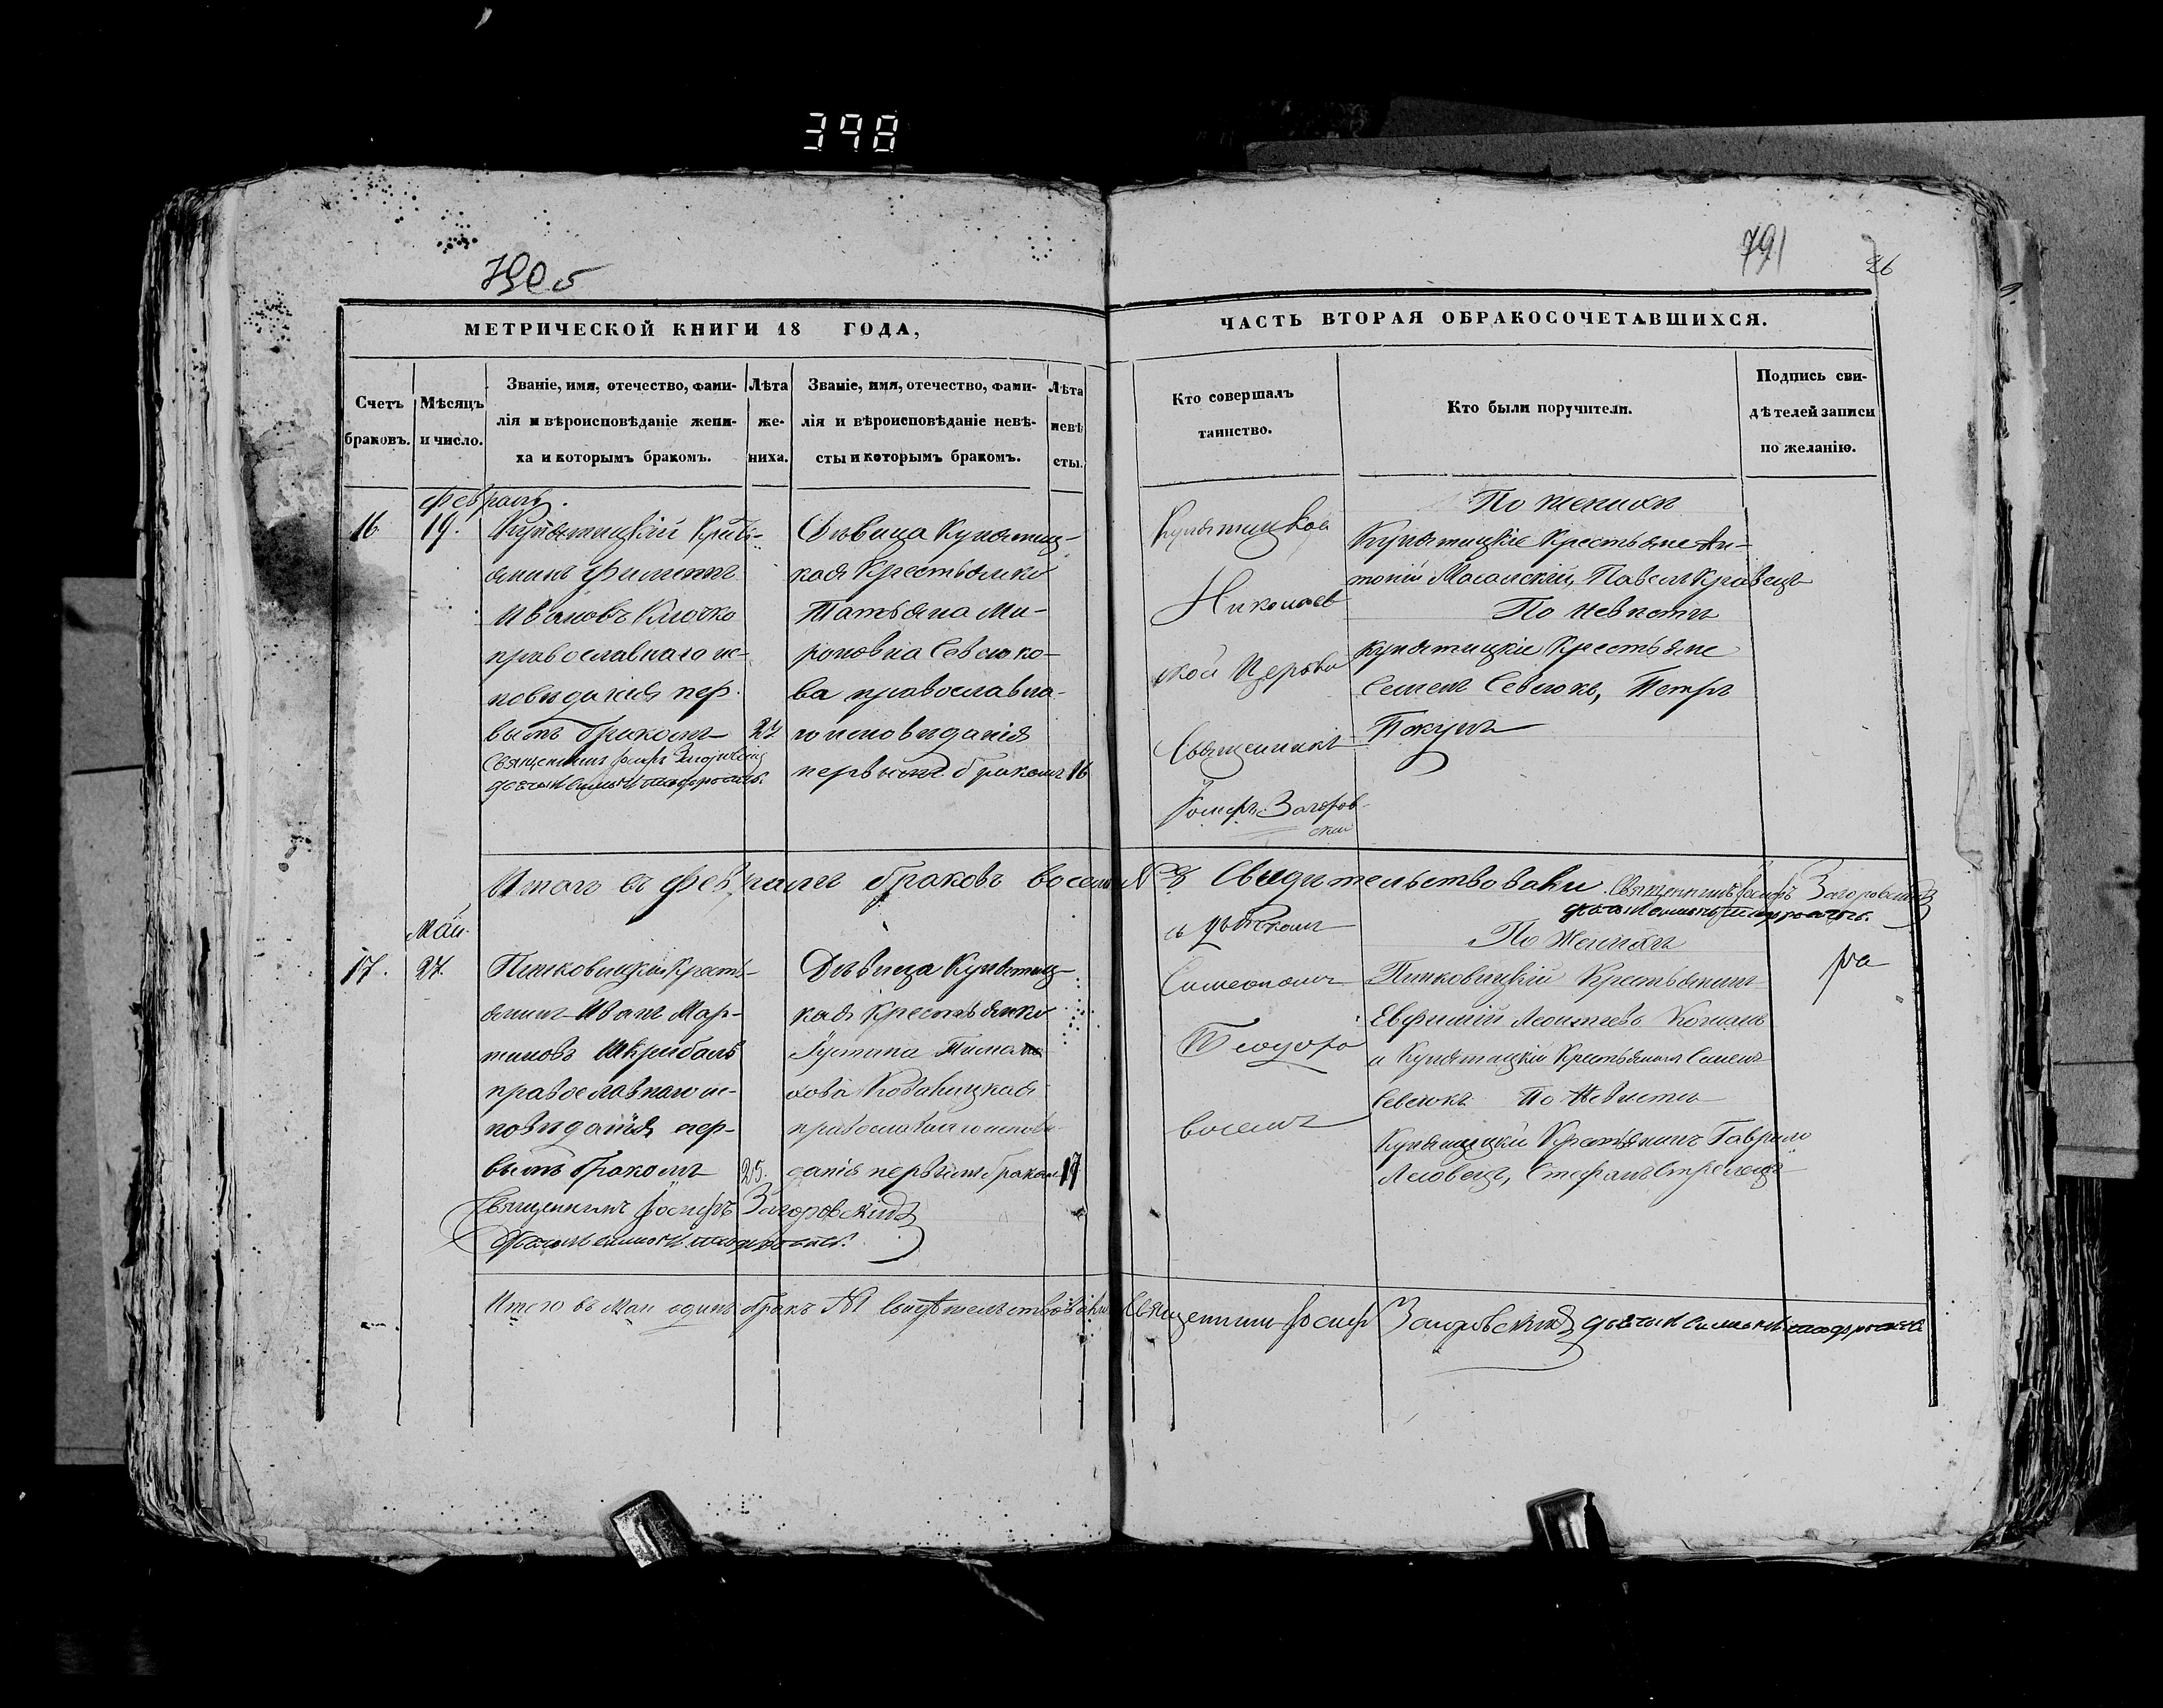 398
790 б
791
26
МЕТРИЧЕСКОЙ КНИГИ 18 ГОДА,
ЧАСТЬ ВТОРАЯ ОБРАКОСОЧЕТАВШИХСЯ.
Счетъ
браковъ.
Мѣсяцъ
и число.
Званіе, имя, отечество, фами-
лія и вѣроисповѣданіе жени-
ха и которымъ бракомъ.
Лѣта
же-
ниха.
Званіе, имя, отечество, фами-
лія и вѣроисповѣданіе невѣ-
сты и которымъ бракомъ.
Лѣта
невѣ
сты.
Кто совершалъ
таинство.
Кто были поручители.
Подпись сви-
дѣтелей записи
по желанію.
Февраль.
16
19.
Купятицкій Кресть-
янинъ Филиппъ
Ивановъ Клочко
православнаго ис-
повѣданія пер-
вымъ бракомъ
Священникъ Іосифъ
27
Дѣвица Купятиц-
кая Крестьянка
Татьяна Ми-
ронова Севлюко-
ва православна-
го исповѣданія
первымъ бракомъ
16
Купятицкой
Николаев
ской Церкви
Священникъ
Іосифъ Загоров-
скій
По женихѣ
Купятицкіе Крестьяне Ан-
тоній Масалскій, Павелъ Кравецъ
По невѣстѣ
Купятицкіе Крестьяне
Семенъ Севлюкъ, Петръ
Итого въ Февралѣ браковъ восемь № 8 Свидѣтельствовали Священникъ Іосифъ Загоровскій
Май.
17.
27.
Пинковицкій Кресть-
янинъ Иванъ Мар-
тиновъ Шкрибалъ
православнаго ис-
повѣданія пер-
вымъ бракомъ
25.
Священникъ Іосифъ Загоровскій
Дѣвица Купятиц-
кая Крестьянка
Іустина
православнаго исповѣ-
данія первымъ бракомъ
17
съ дьячкомъ
Симеономъ
По Женихѣ
Пинковицкій Крестьянинъ
Евфимій Леонтьевъ
и Купятицкій Крестьянинъ Семенъ
Севлюкъ По Невѣстѣ
Купятицкій Крестьянинъ Гаврило
Лясовецъ, Стефанъ Стрелецъ
Итого въ Маи одинъ бракъ № 1 Свидѣтельствовали Священникъ Іосифъ Загоровскій